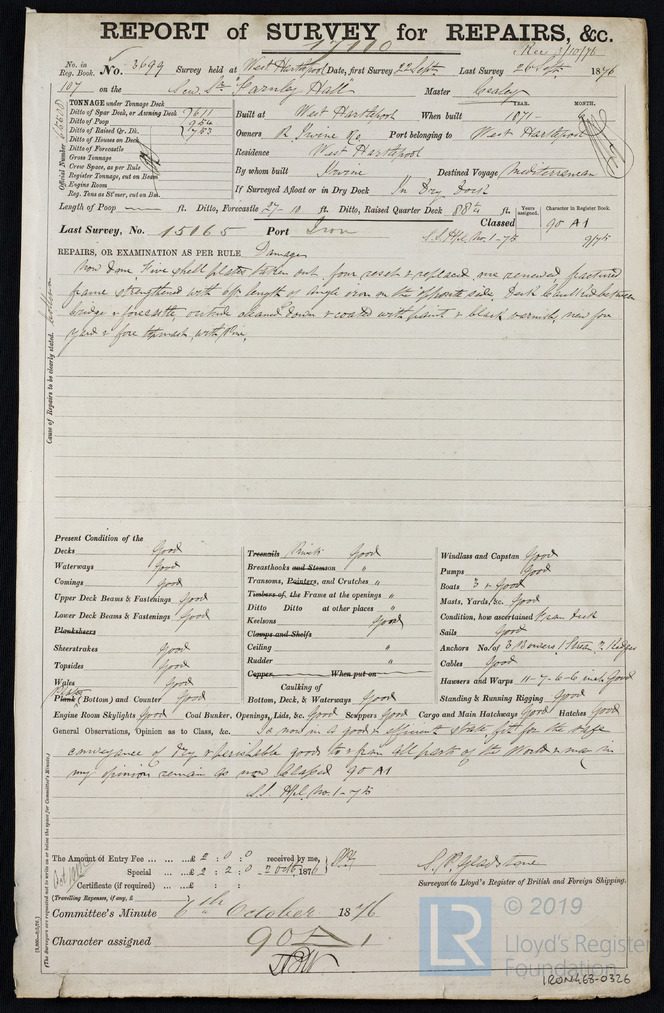 REPORT of SURVEY for REPAIRS, &c.
17110
Rec 3/10/76
No. in Reg. Book. No. 3699 Survey held at West Hartlepool Date, first Survey 22 Sept. Last Survey 26 Sept. 1876
107 on the Screw Str "Carnley Hall" Master Cealey
TONNAGE under Tonnage Deck
Ditto of Spar Deck, or Awning Deck
Ditto of Poop
Ditto of Raised Qr. Dk.
Ditto of Houses on Deck
Ditto of Forecastle
Gross Tonnage
Crew Space, as per Rule
Register Tonnage, cut on Beam
Engine Room
Reg. Tons as St'mer, cut on Bm.
Official Number
YEAR. MONTH.
Built at West Hartlepool When built 1871-
Owners R. Irvine & Co Port belonging to West Hartlepool
Residence West Hartlepool
By whom built Irvine Destined Voyage Mediterranean
If Surveyed Afloat or in Dry Dock In Dry Dock
Length of Poop ft. Ditto, Forecastle 27-10 ft. Ditto, Raised Quarter Deck 88¼ ft.
Years assigned. Character in Register Book.
Last Survey, No. 15065 Port Iron Classed 90 A1
S.S. Hpl. No. 1-75 9/75
REPAIRS, OR EXAMINATION AS PER RULE Damages
Now done. Five shell plates taken out, four reset & replaced, one renewed, fractured
frame strengthened with 6ft length of angle iron on the opposite side. Deck caulked between
bridge & forecastle, outside cleaned down & coated with paint & black varnish, new fore
yard & fore topmast, with
Cause of Repairs to be clearly stated.
Present Condition of the
Decks Good
Waterways Good
Comings Good
Upper Deck Beams & Fastenings Good
Lower Deck Beams & Fastenings Good
Planksheers
Sheerstrakes Good
Topsides Good
Wales Good
Plates Plank (Bottom) and Counter Good
Treenails Rivets Good
Breasthooks and Stemson "
Transoms, Pointers, and Crutches "
Timbers of, the Frame at the openings "
Ditto Ditto at other places "
Keelsons Good
Clamps and Shelfs
Ceiling "
Rudder "
Copper When put on
Caulking of
Bottom, Deck, & Waterways Good
Windlass and Capstan Good
Pumps Good
Boats 3 & Good
Masts, Yards, &c. Good
Condition, how ascertained From Deck
Sails Good
Anchors No. of 3 Bowers 1 Stream 2 Kedges
Cables Good
Hawsers and Warps 11-7-6-6 inch Good
Standing & Running Rigging Good
Engine Room Skylights Good Coal Bunker, Openings, Lids, &c. Good Scuppers Good Cargo and Main Hatchways Good Hatches Good
General Observations, Opinion as to Class, &c. Is now in a good & efficient state, fit for the safe
conveyance of dry & perishable goods to & from all parts of the World & may in
my opinion remain as now Classed 90 A1
S.S. Hpl. No. 1-75
(The Surveyors are requested not to write on or below the space for Committee's Minute.)
The Amount of Entry Fee ... ... £ 2 : 0 : 0 received by me,
Special ... ... £ 2 : 2 : 0 2 Octr. 1876
Certificate (if required) ... £ : :
(Travelling Expenses, if any, £ )
S. P. Gladstone
Surveyor to Lloyd's Register of British and Foreign Shipping.
Committee's Minute 6th October 1876
Character assigned 90 A 1
© 2019
LR
Lloyd's Register
Foundation
IRON468-0326